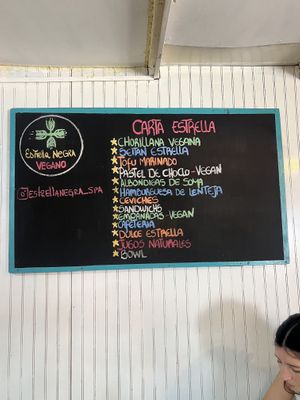 Estrella Negra
VEGANO
@ESTRELLANEGRA_SPA
CARTA ESTRELLA
CHORILLANA VEGANA
SEITAN ESTRELLA
TOFU MARINADO
PASTEL DE CHOCLO-VEGAN
ALBONDIGAS DE SOYA
HAMBURGUESA DE LENTEJA
CEVICHES
SANDWICHS
EMPANADAS-VEGAN
CAFETERIA
DULCE ESTRELLA
JUGOS NATURALES
BOWL